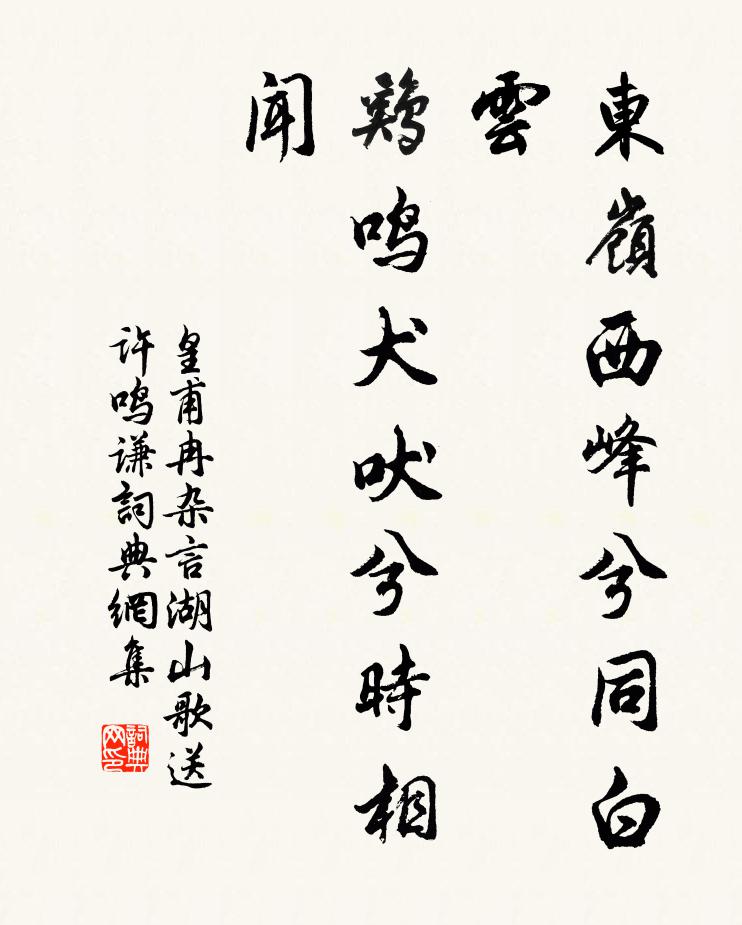 東嶺西峰兮同白
雲
鷄鳴犬吠兮時相
闻
皇甫冉杂言湖山歌送
许鸣谦詞典網集
詞典
网印